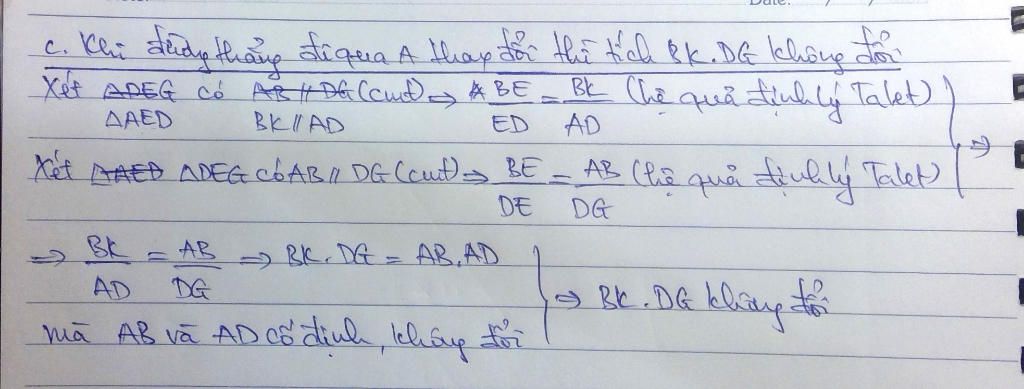 Date:
c. Khi đường thẳng đi qua A thay đổi thì tích BK.DG không đổi
Xét ADEG có AB // DG (cmt) ⇒ BE/ED = BK/AD (hệ quả định lý Talet)
ΔAED BK // AD
Xét ΔAED ΔDEG có AB // DG (cmt) ⇒ BE/DE = AB/DG (hệ quả định lý Talet) ⇒
⇒ BK/AD = AB/DG ⇒ BK.DG = AB.AD
⇒ BK.DG không đổi
mà AB và AD cố định, không đổi